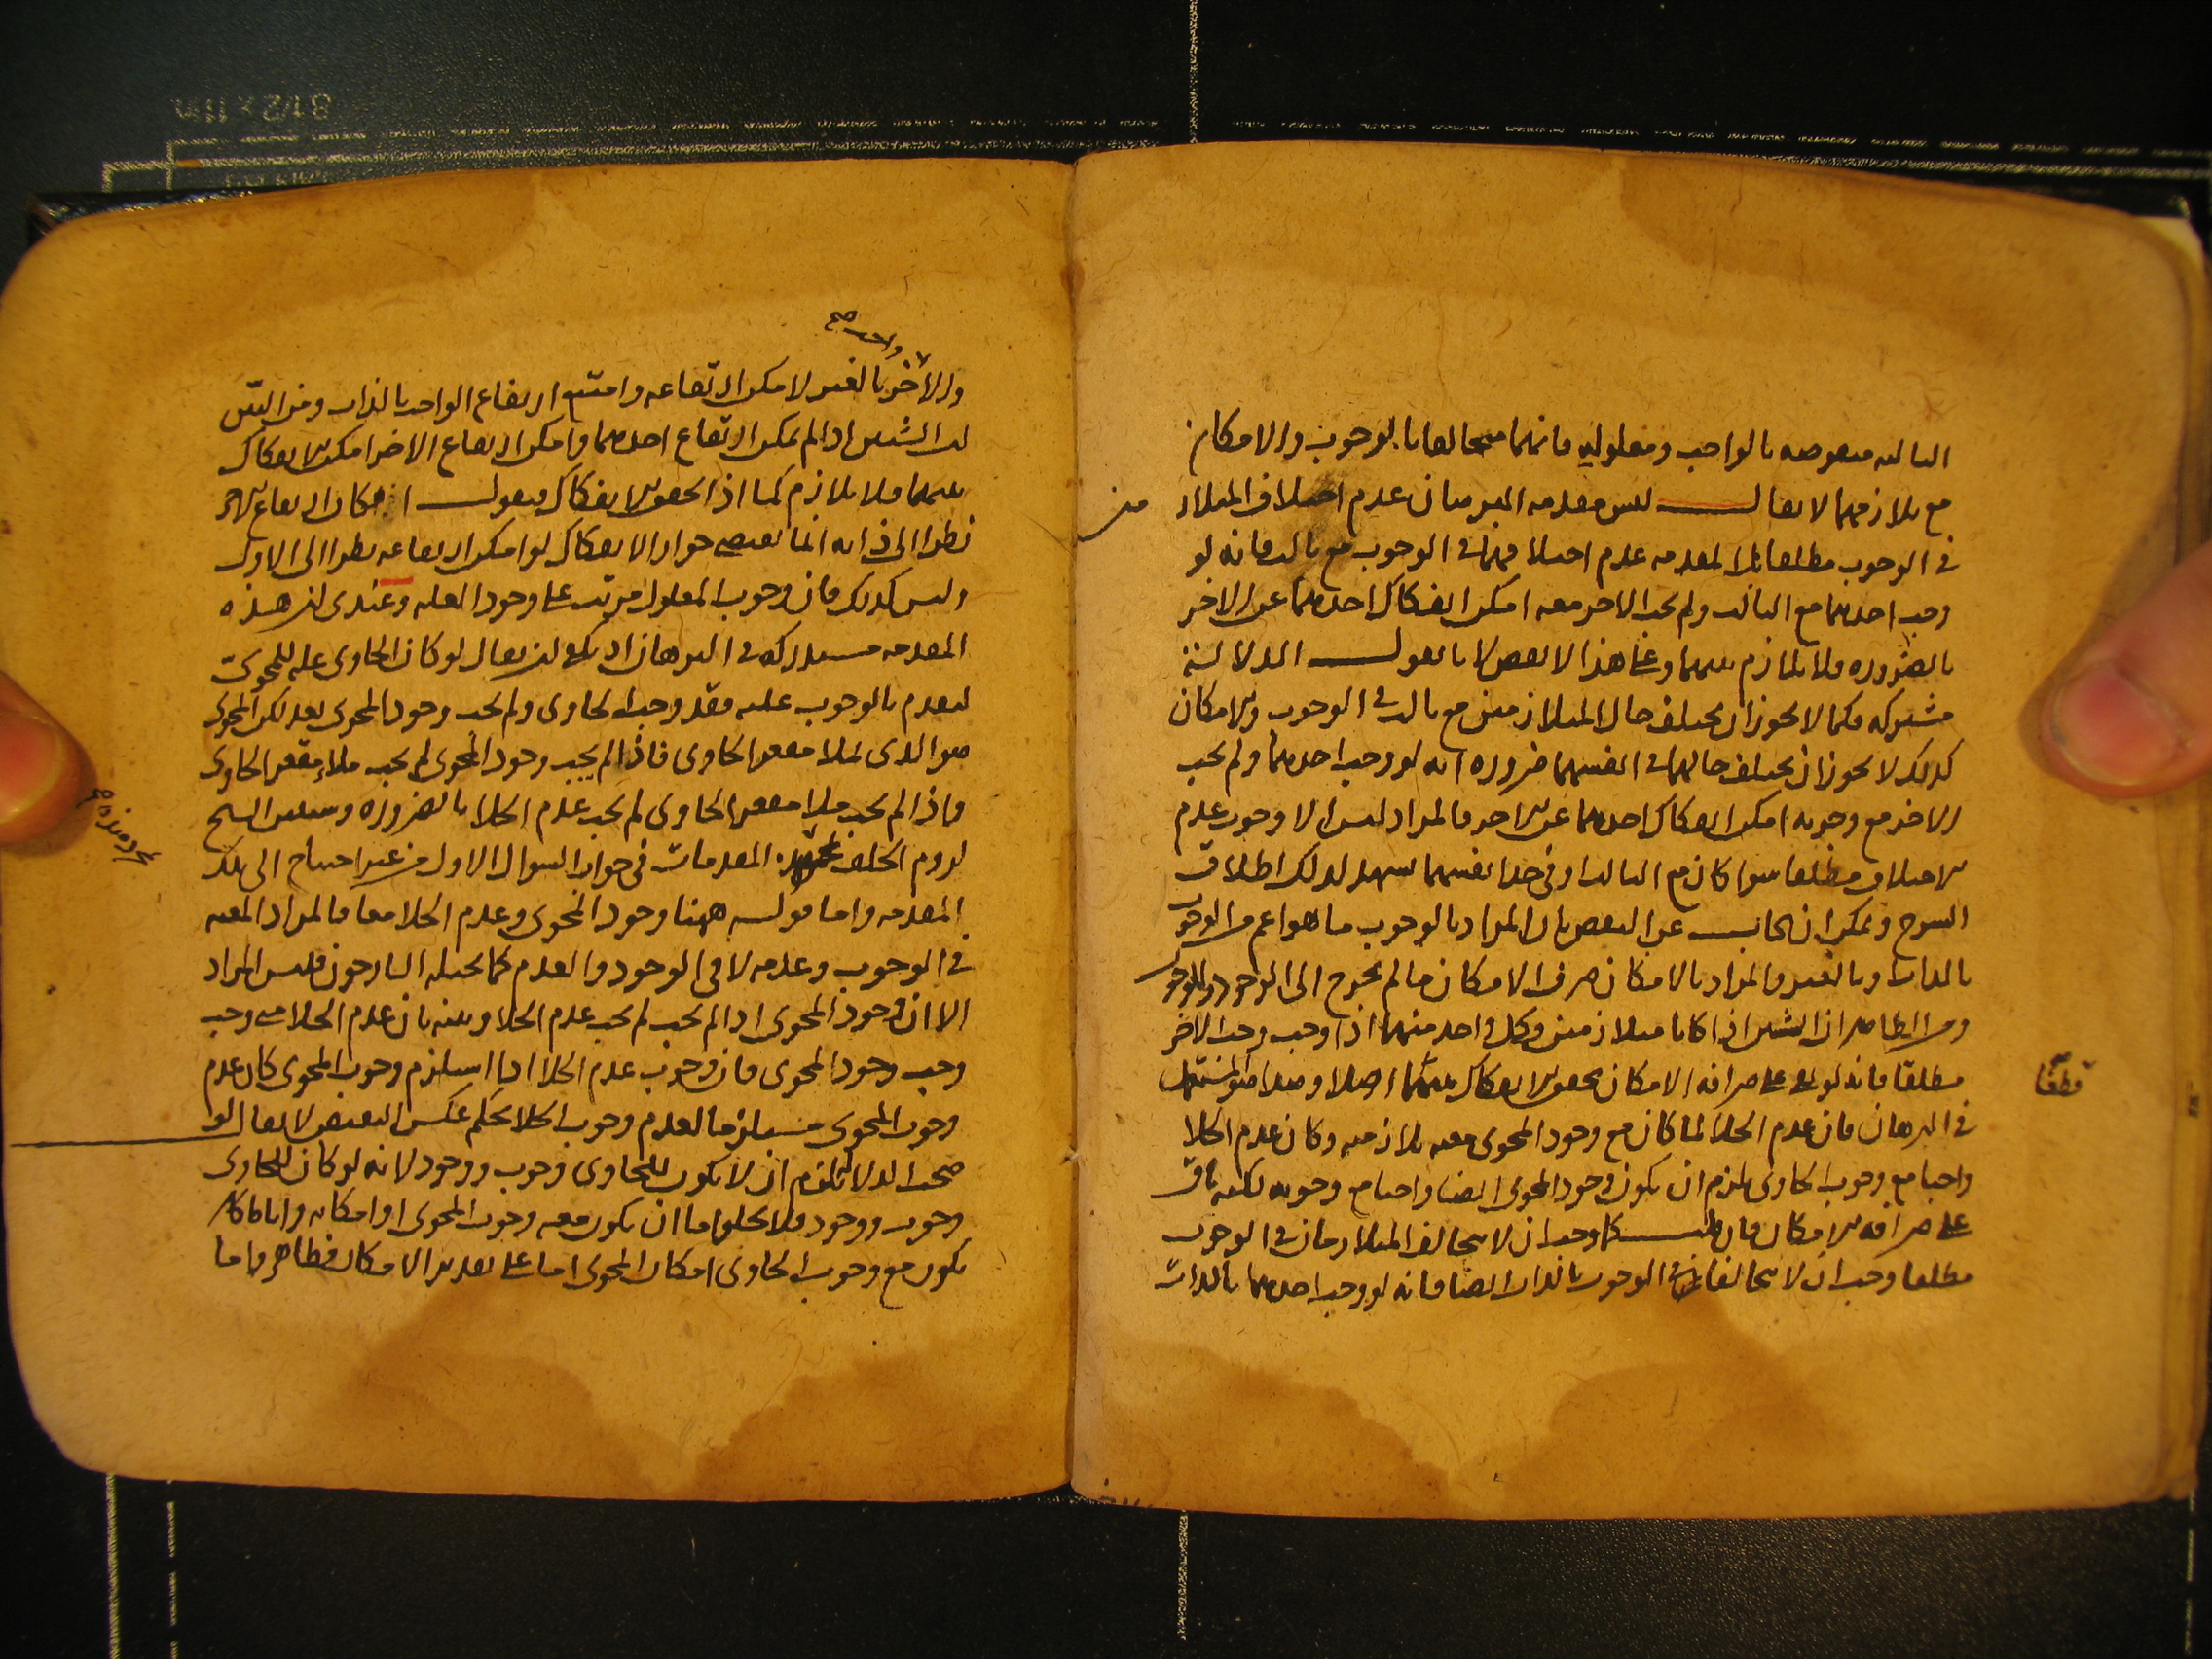 التالية منقوضة بالواجب ومعلوليه فانهما متخالفان بالوجوب والامكان
مع تلازمهما لا يقال ليس مقدمة البرهان عدم اختلاف المتلاز
مين
في الوجوب مطلقا بل المقدمة عدم اختلافهما في الوجوب مع ثالث فانه لو
وجب احدهما مع الثالث ولم يجب الاخر معه امكن انفكاك احدهما عن الاخر
بالضرورة فلا تلازم بينهما وعلى هذا لا نقض لانا نقول الدلالة
مشتركة فكما لا يجوز ان يختلف حال المتلازمين مع ثالث في الوجوب والامكان
كذلك لا يجوز ان يختلف حالهما في انفسهما ضرورة انه لو وجب احدهما ولم يجب
الاخر مع وجوبه امكن انفكاك احدهما عن الاخر فالمراد ليس الا وجوب عدم
الاختلاف مطلقا سوا كان مع الثالث او في حد انفسهما يشهد لذلك اطلاق
الشرح ويمكن ان يجاب عن النقض بان المراد بالوجوب ما هو اعم من الوجوب
بالذات وبالغير والمراد بالامكان صرف الامكان ما لم يخرج الى الوجود والوجوب
ومن الظاهر ان الشيئين اذا كانا متلازمين وكل واحد منهما اذا وجب وجب الاخر
مطلقا فانه لو بقي على صرافة الامكان تحقق الانفكاك بينهما اصلا وهذا هو المستعمل
قطعا
في البرهان فان عدم الخلا لما كان مع وجود المحوى معية تلازمية وكان عدم الخلا
واجبا مع وجوب الحاوى يلزم ان يكون وجود المحوى ايضا واجبا مع وجوبه لكنه باق
على صرافة الامكان فان قلت كما وجب ان لا يتخالف المتلازمان في الوجوب
مطلقا وجب ان لا يتخالفا في الوجوب بالذات ايضا فانه لو وجب احدهما بالذات
والاخر بالغير لامكن ارتفاعه وامتنع ارتفاع الواجب بالذات ومن البين
ان الشيئين اذا لم يمكن ارتفاع احدهما وامكن ارتفاع الاخر امكن الانفكاك
بينهما فلا تلازم كما اذا تحقق الانفكاك فنقول امكان ارتفاع الاخر
نظرا الى ذاته انما يقتضي جواز الانفكاك لو امكن ارتفاعه نظرا الى الاول
وليس كذلك فان وجوب المعلول مرتب على وجود العلة وعندى ان هذه
المقدمة مستدركة في البرهان اذ يكفي ان يقال لو كان الحاوى علة للمحوى
لتقدم بالوجوب عليه فقد وجب الحاوى ولم يجب وجود المحوى بعد لكن المحوى
هو الذى يملا مقعر الحاوى فاذا لم يجب وجود المحوى لم يجب ملاء مقعر الحاوى
فاذا لم يجب ملا مقعر الحاوى لم يجب عدم الخلا بالضرورة وسيبين الشيخ
لزوم الخلف المقدمات في جواب السوال الاول من غير احتياج الى تلك
المقدمة واما قوله ههنا وجود المحوى وعدم الخلا معا فالمراد المعية
في الوجوب وعدمه لا في الوجود والعدم كما تخيله الشارحون فليس المراد
الا ان وجود المحوى اذا لم يجب لم يجب عدم الخلا وبينه بان عدم الخلا متى وجب
وجب وجود المحوى فان وجوب عدم الخلا اذا استلزم وجوب المحوى كان عدم
وجوب المحوى مستلزما لعدم وجوب الخلا بحكم عكس النقيض لا يقال لو
صحت الدلالة يلزم ان لا يكون للحاوى وجوب ووجود لانه لو كان للحاوى
وجوب ووجود فلا يخلو اما ان يكون معه وجوب المحوى او امكانه وايا ما كان
يكون مع وجوب الحاوى امكان المحوى اما على تقدير الامكان فظاهر واما